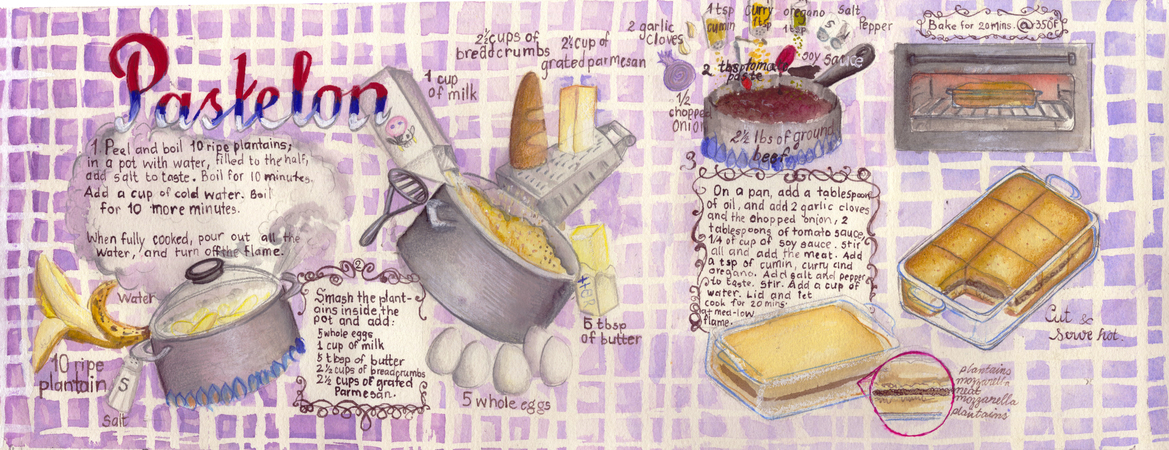 Pastelon
1. Peel and boil 10 ripe plantains;
in a pot with water, filled to the half,
add salt to taste. Boil for 10 minutes.
Add a cup of cold water. Boil
for 10 more minutes.
When fully cooked, pour out all the
water, and turn off the flame.
Water
10 ripe
plantain
S
Salt
2
Smash the plant-
ains inside the
pot and add:
5 whole eggs
1 cup of milk
5 tbsp of butter
2½ cups of breadcrumbs
2½ cups of grated
Parmesan.
1 cup
of milk
2½ cups of
breadcrumbs
2½ cup of
grated parmesan
5 tbsp
of butter
5 whole eggs
2 garlic
cloves
1 tsp
cumin
curry
oregano
1 tsp
salt
Pepper
soy sauce
2 tbsp tomato
paste
½
chopped
onion
2½ lbs of ground
beef
3
On a pan, add a tablespoon
of oil, and add 2 garlic cloves
and the chopped onion, 2
tablespoons of tomato sauce,
1/4 of cup of soy sauce. Stir
all and add the meat. Add
a tsp of cumin, curry and
oregano. Add salt and pepper
to taste. Stir. Add a cup of
water. Lid and let
cook for 20 mins.
at med-low
flame.
Bake for 20 mins. @ 350F
Cut &
serve hot.
plantains
mozzarella
meat
mozzarella
plantains